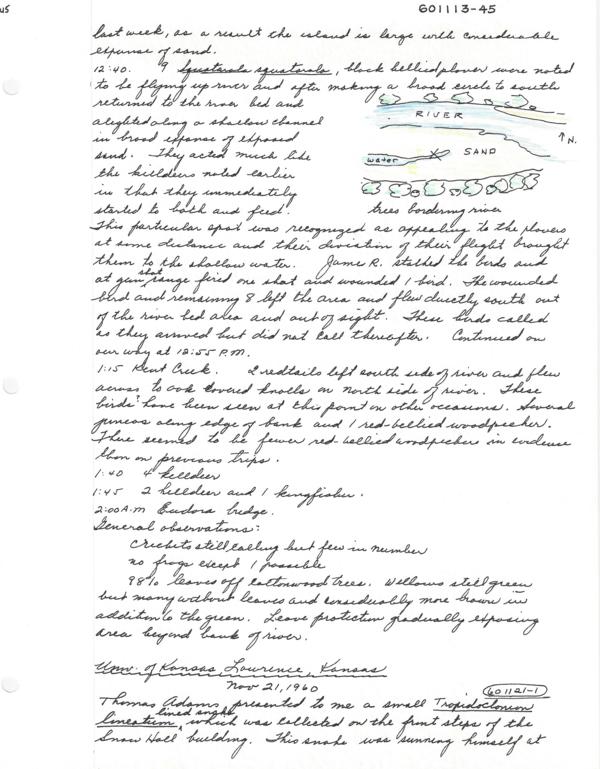 us
601113-45
last week, as a result the island is large with considerable
expanse of sand.
12:40. 9 Squatarola squatarola, black bellied plover were noted
to be flying up river and after making a broad circle to south
returned to the river bed and
alighted along a shallow channel
in broad expanse of exposed
sand. They acted much like
the killdeers noted earlier
in that they immediately
started to bath and feed.
RIVER
N.
SAND
water
trees bordering river
This particular spot was recognized as appealing to the plovers
at some distance and their deviation of their flight brought
them to the shallow water. Jame R. stalked the birds and
at gun shot range fired one shot and wounded 1 bird. The wounded
bird and remaining 8 left the area and flew directly south out
of the river bed area and out of sight. These birds called
as they arrived but did not call thereafter. Continued on
our way at 12:55 P.M.
1:15 Kent Creek. 2 redtails left south side of river and flew
across to oak covered knolls on north side of river. These
birds? have been seen at this point on other occasions. Several
juncos along edge of bank and 1 red-bellied woodpecker.
There seemed to be fewer red-bellied woodpecker in evidence
than on previous trips.
1:40 4 killdeer
1:45 2 killdeer and 1 kingfisher.
2:00 A.M Eudora bridge.
General observations:
Crickets still calling but few in number
no frogs except 1 possible
98% leaves off cottonwood trees. Willows still green
but many without leaves and considerably more brown in
addition to the green. Leave protection gradually exposing
area beyond bank of river.
Univ. of Kansas Lawrence, Kansas
Nov 21, 1960
601121-1
Thomas Adams presented to me a small Tropidoclonion
lineatum, lined snake which was collected on the front steps of the
Snow Hall building. This snake was sunning himself at